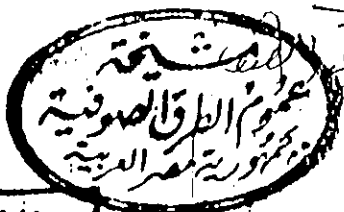 مشيخة
عموم الطرق الصوفية
بجمهورية مصر العربية